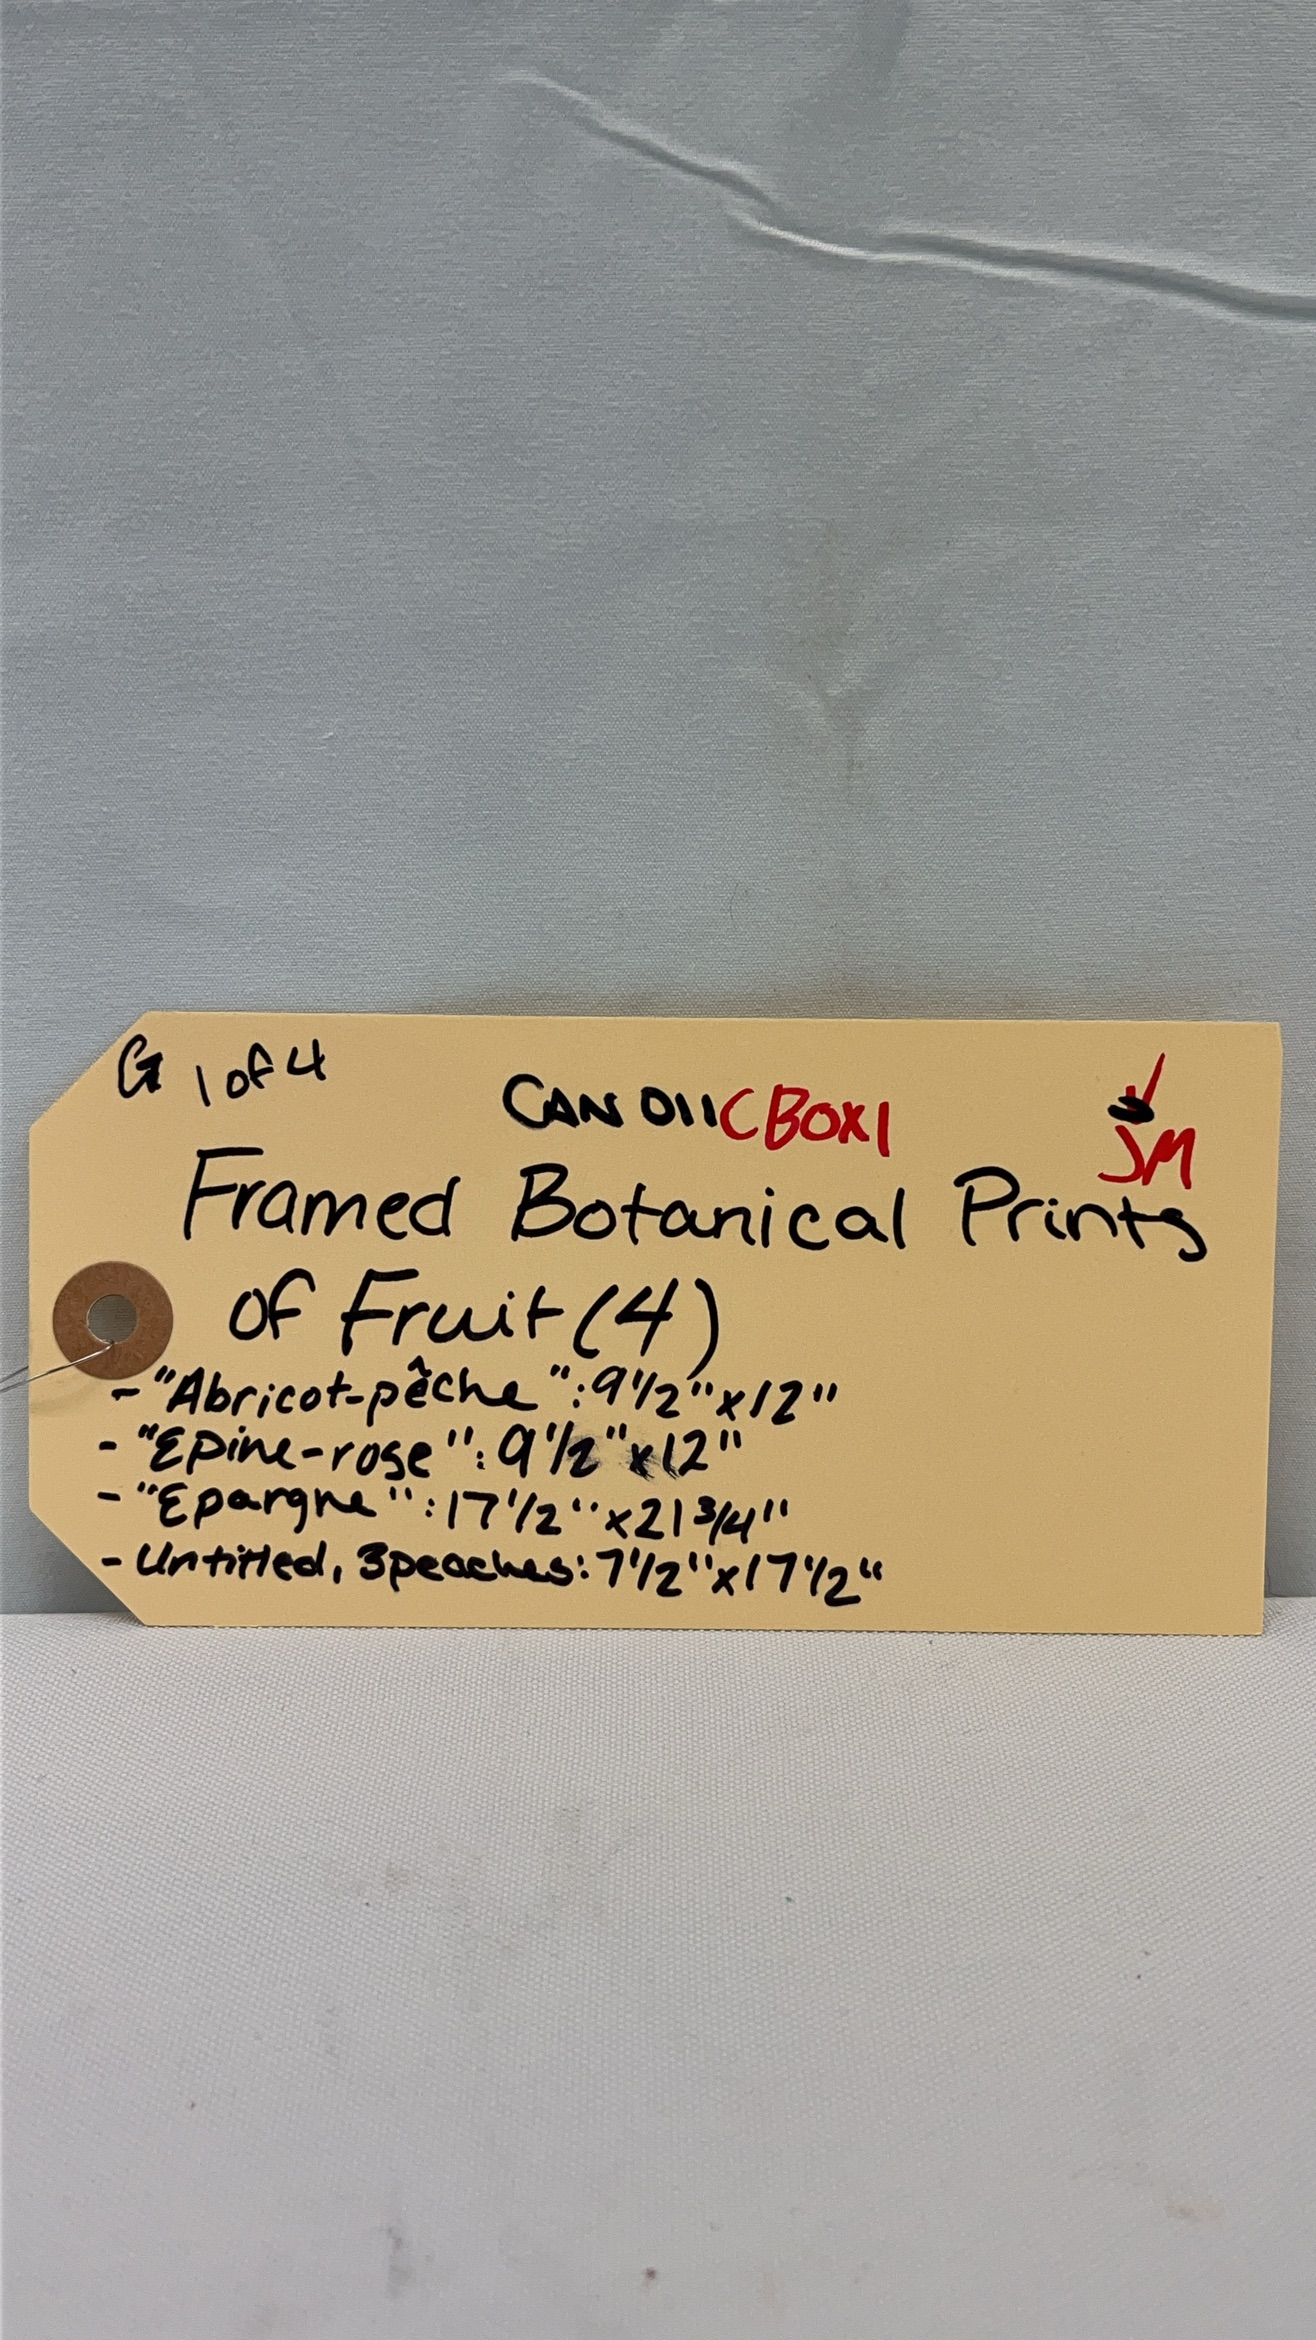 G 1 of 4
CAN 011 CBOX1
JM
Framed Botanical Prints
of Fruit (4)
- "Abricot-pêche": 9 1/2" x 12"
- "Epine-rose": 9 1/2" x 12"
- "Epargne": 17 1/2" x 21 3/4"
- Untitled, 3 peaches: 7 1/2" x 17 1/2"